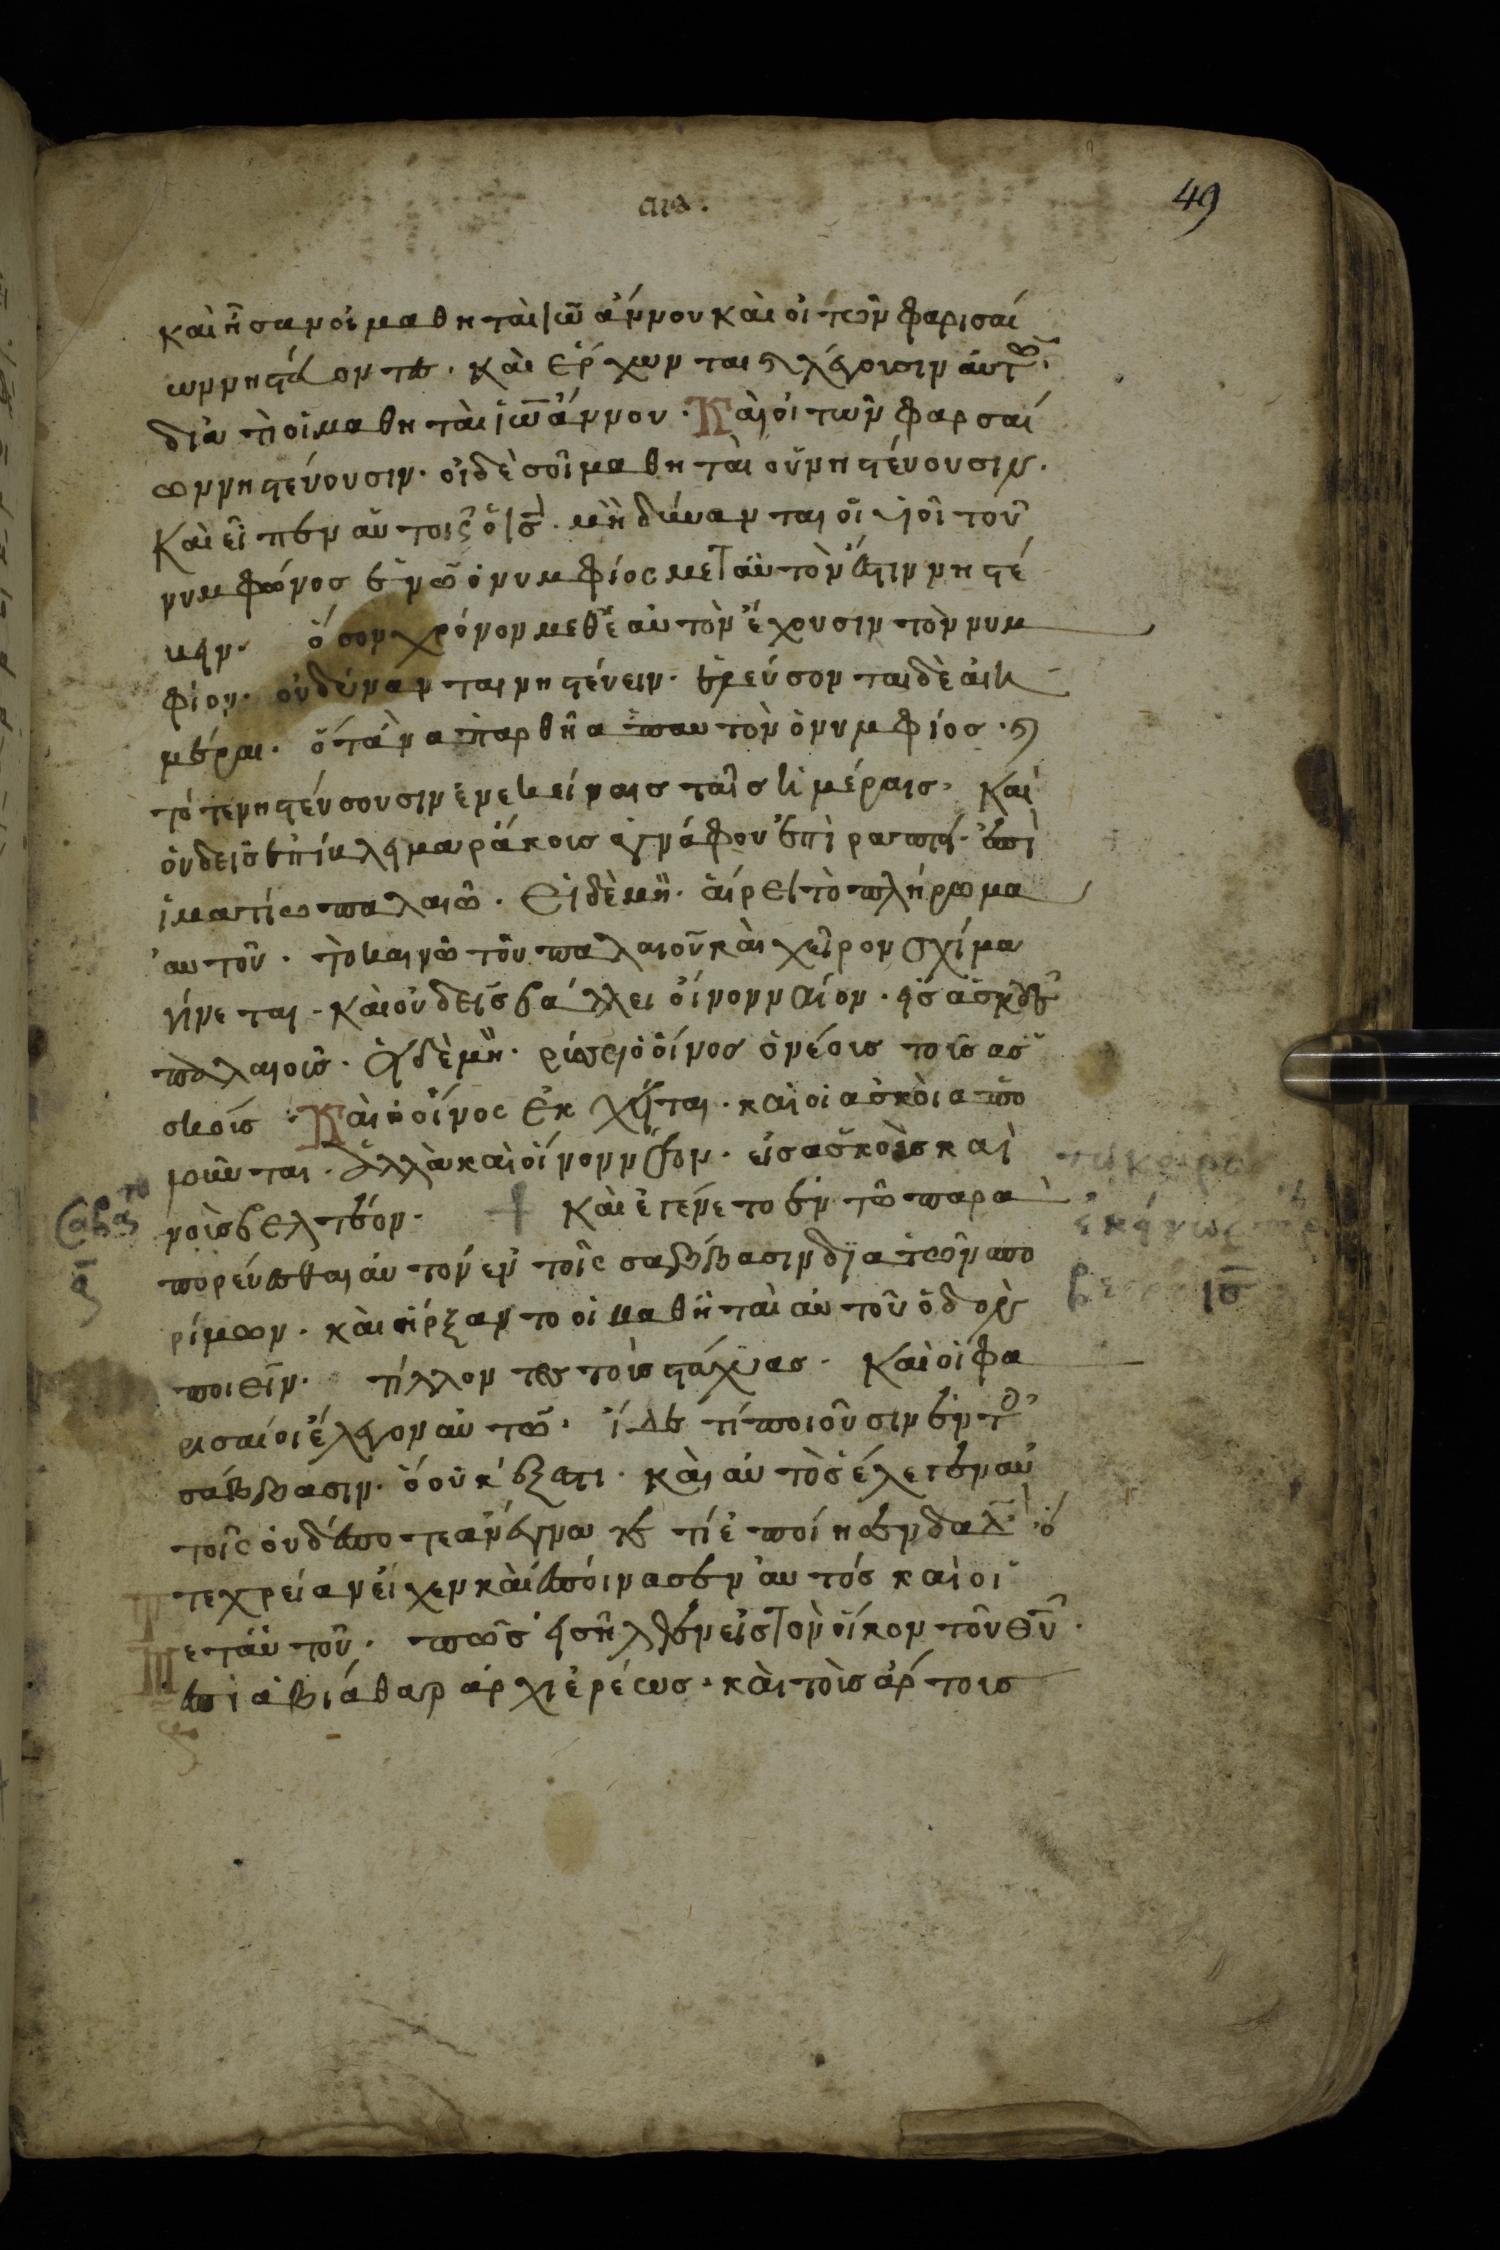 49
και ἦσαν οἱ μαθηταὶ ἰω̅άννου καὶ οἱ τῶν φαρισαί
ων νηστέβοντες. καὶ ἔρχωνται κ λέγουσιν ἀυτῶ.
διὰ τὶ οἱ μαθηταὶ ἰω̅άννου. Καὶ οἱ τῶν φαρσαί
ων νηστέυουσιν. οἱ δὲ σοῖ μαθηταὶ οὔ νηστέυουσιν.
Καὶ εἶπεν αὐτοις ὁ ι̅ς̅. μὴ δύνανται οἱ υἱοὶ τοῦ
νυμφώνος ἐν ῶ ὁ νυμφίος μετ αὐτὸν ἐστιν νηστέ
υειν. ὅσον χρόνον μεθἑ αὐτὸν ἔχουσιν τὸν νυμ
φίον. οὐ δύνανται νηστέυειν. ἐλεύσονται δὲ ἁι η
μέραι. ὅτἂν ἀπαρθῆ απ αυτὸν ὁ νυμφίος. κ
τότε νηστέυσουσιν ἐν εκείναις ταῖς ἡμέραις. Καὶ
οὐδεὶς ἐπίκλημα ράκοις αγνάφου ἐπὶ ραπτει. ἐπὶ
ἱματίω παλαιῶ. Εἰ δὲ μὴ. αἴρει τὸ πλήρωμα
αυτοῦ. τὸ καινὸ τοῦ παλαιοῦ καὶ χεῖρον σχίμα
γίνεται. καὶ οὐδεὶς βάλλει οἶνον νέον. εἰς ἀσκοὺς
παλαιοὶς. εἰ δὲ μὴ. ρίσει ὁ οἶνος ὁ νέοις τοὶς ασ
σκοίς. Καὶ ὁ οἶνος ἐκχῆται. και οἱ ἀσκοὶ απο
λοῦνται. Ἀλλὰ και οἶνον νέον. εἰς ἀσκοὶς και
νοὶς βελτέον. + Καὶ ἐγένετο ἐν τῶ παρα
πορεύεσθαι αὐτόν ἐν τοῖς σαββασιν διὰ τῶν σπο
ρίμων. καὶ ἤρξαντο οἱ μαθηταὶ αὐτοῦ ὁδὸν
ποιεῖν. τίλλοντες τοὶς στάχυας. Καὶ οἱ φα
ρισαίοι ἔλεγον αὐτῶ. ἴδε τί ποιοῦσιν ἐν τοῖ
σάββασιν. ὃ οὐκ ἔξεστι. καὶ αὐτὸς ἔλεγεν αὐ
τοῖς οὐδέποτε ἀνέγνω τε τί ἐποίησεν δα̅δ̅ ὅ
τε χρείαν εἶχεν καὶ ἐποίνασεν αυτός και οἱ
μετ αὐτοῦ. πῶς εἰσῆλθεν εἰς τὸν οἶκον τοῦ θ̅υ̅.
Ἐπὶ ἀβιάθαρ ἀρχιἐρέως. καὶ τοὶς ἄρτοις